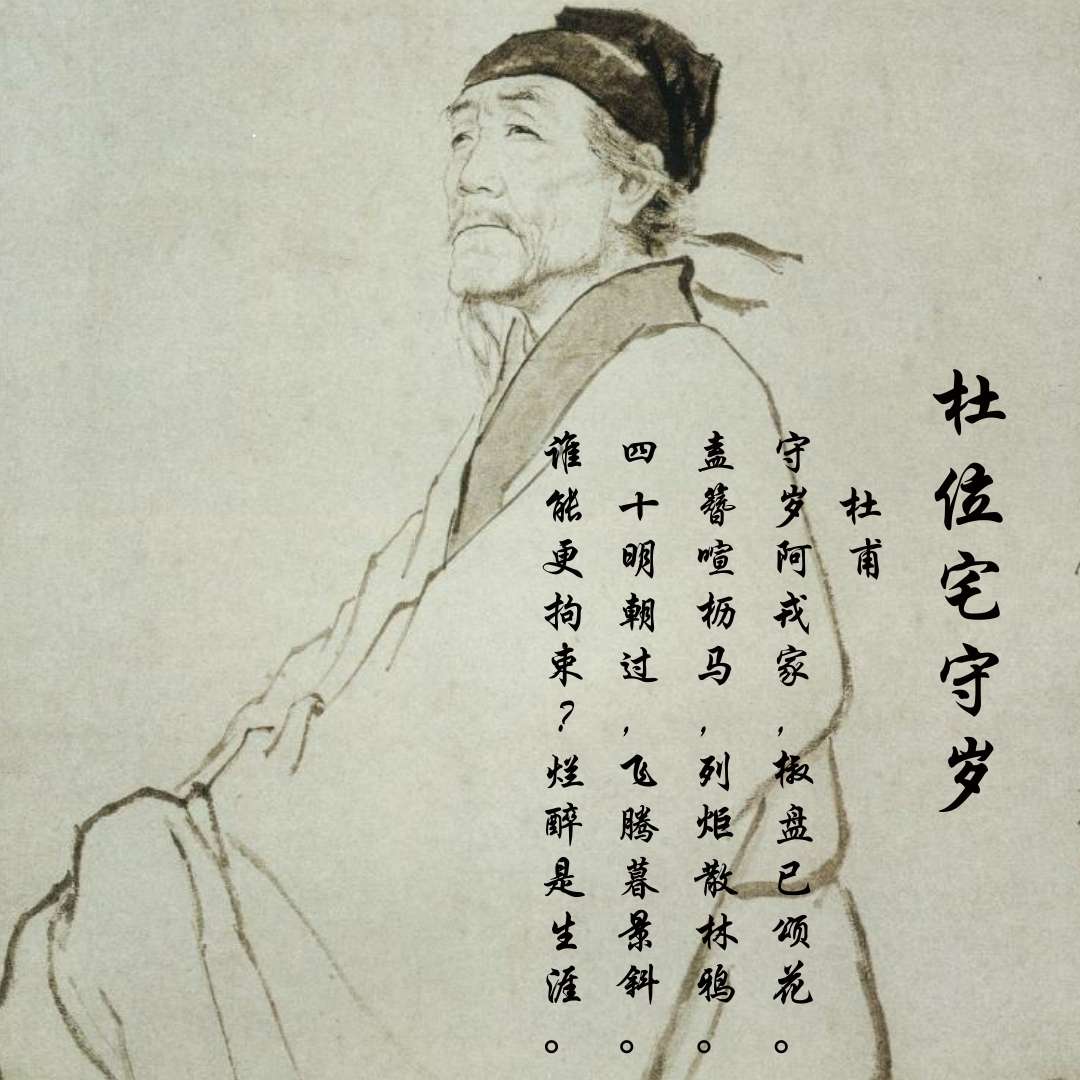 杜位宅守岁
杜甫
守岁阿戎家,椒盘已颂花。
盍簪喧枥马,列炬散林鸦。
四十明朝过,飞腾暮景斜。
谁能更拘束?烂醉是生涯。